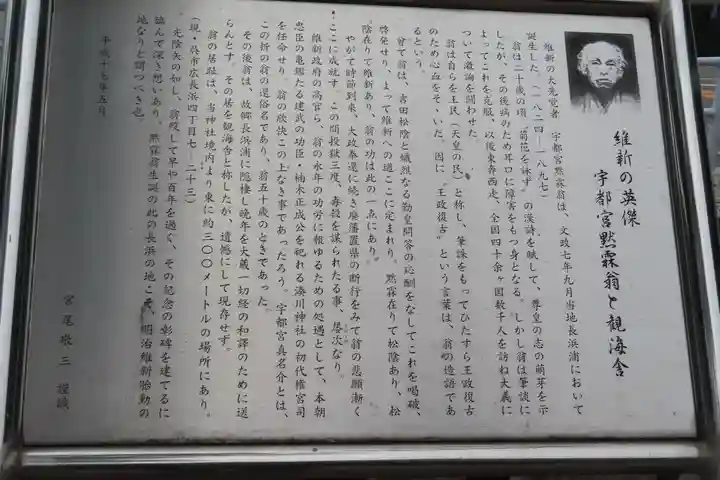 維新の英傑
宇都宮黙霖翁と観海舎
維新の大先覚者 宇都宮黙霖翁は、文政七年九月当地長浜浦において
誕生した。(一八二四―一八九七)
翁は二十歳の頃「菊花を詠ず」の漢詩を賦して、尊皇の志の萌芽を示
したが、その後病のため耳口に障害をもつ身となる。しかし翁は筆談に
よってこれを克服、以後東奔西走、全国四十余ヶ国数千人を訪ね大義に
ついて激論を闘わせた。
翁は自らを王民(天皇の民)と称し、筆誅をもってひたすら王政復古
のため心血をそゝいた。因に〝王政復古〟という言葉は、翁の造語であ
るという。
曾て翁は、吉田松陰と熾烈なる勤皇問答の応酬をなしてこれを喝破、
啓発せり、よって維新への道ここに定まれり。黙霖在りて松陰あり、松
陰在りて維新あり、翁の功は此の一点にあり。
やがて時節到来、大政奉還に続き廃藩置県の断行をみて翁の悲願漸く
ここに成就す。この間投獄三度、毒殺を謀られたる事、屡次なり。
維新政府の高官ら、翁の永年の功労に報ゆるための処遇として、本朝
忠臣の亀鑑たる建武の功臣・楠木正成公を祀れる湊川神社の初代権宮司
を任命せり。翁の欣快この上なき事であったろう。宇都宮真名介とは、
この折の翁の通俗名であり、翁五十歳のときであった。
その後翁は、故郷長浜浦に隠棲し晩年を大蔵一切経の和譯のために送
らんとす。その居を観海舎と称したが、遺憾にして現存せず。
翁の居趾は、当神社境内より東に約三〇〇メートルの場所にあり。
(現・呉市広長浜四丁目七―二十三)
光陰矢の如し、翁歿して早や百年を過ぐ、その記念の彰碑を建てるに
臨んで深き想いあり。黙霖翁生誕の此の長浜の地こそ、明治維新胎動の
地なりと謂つべき也。
平成十七年五月
宮尾敬三 謹識